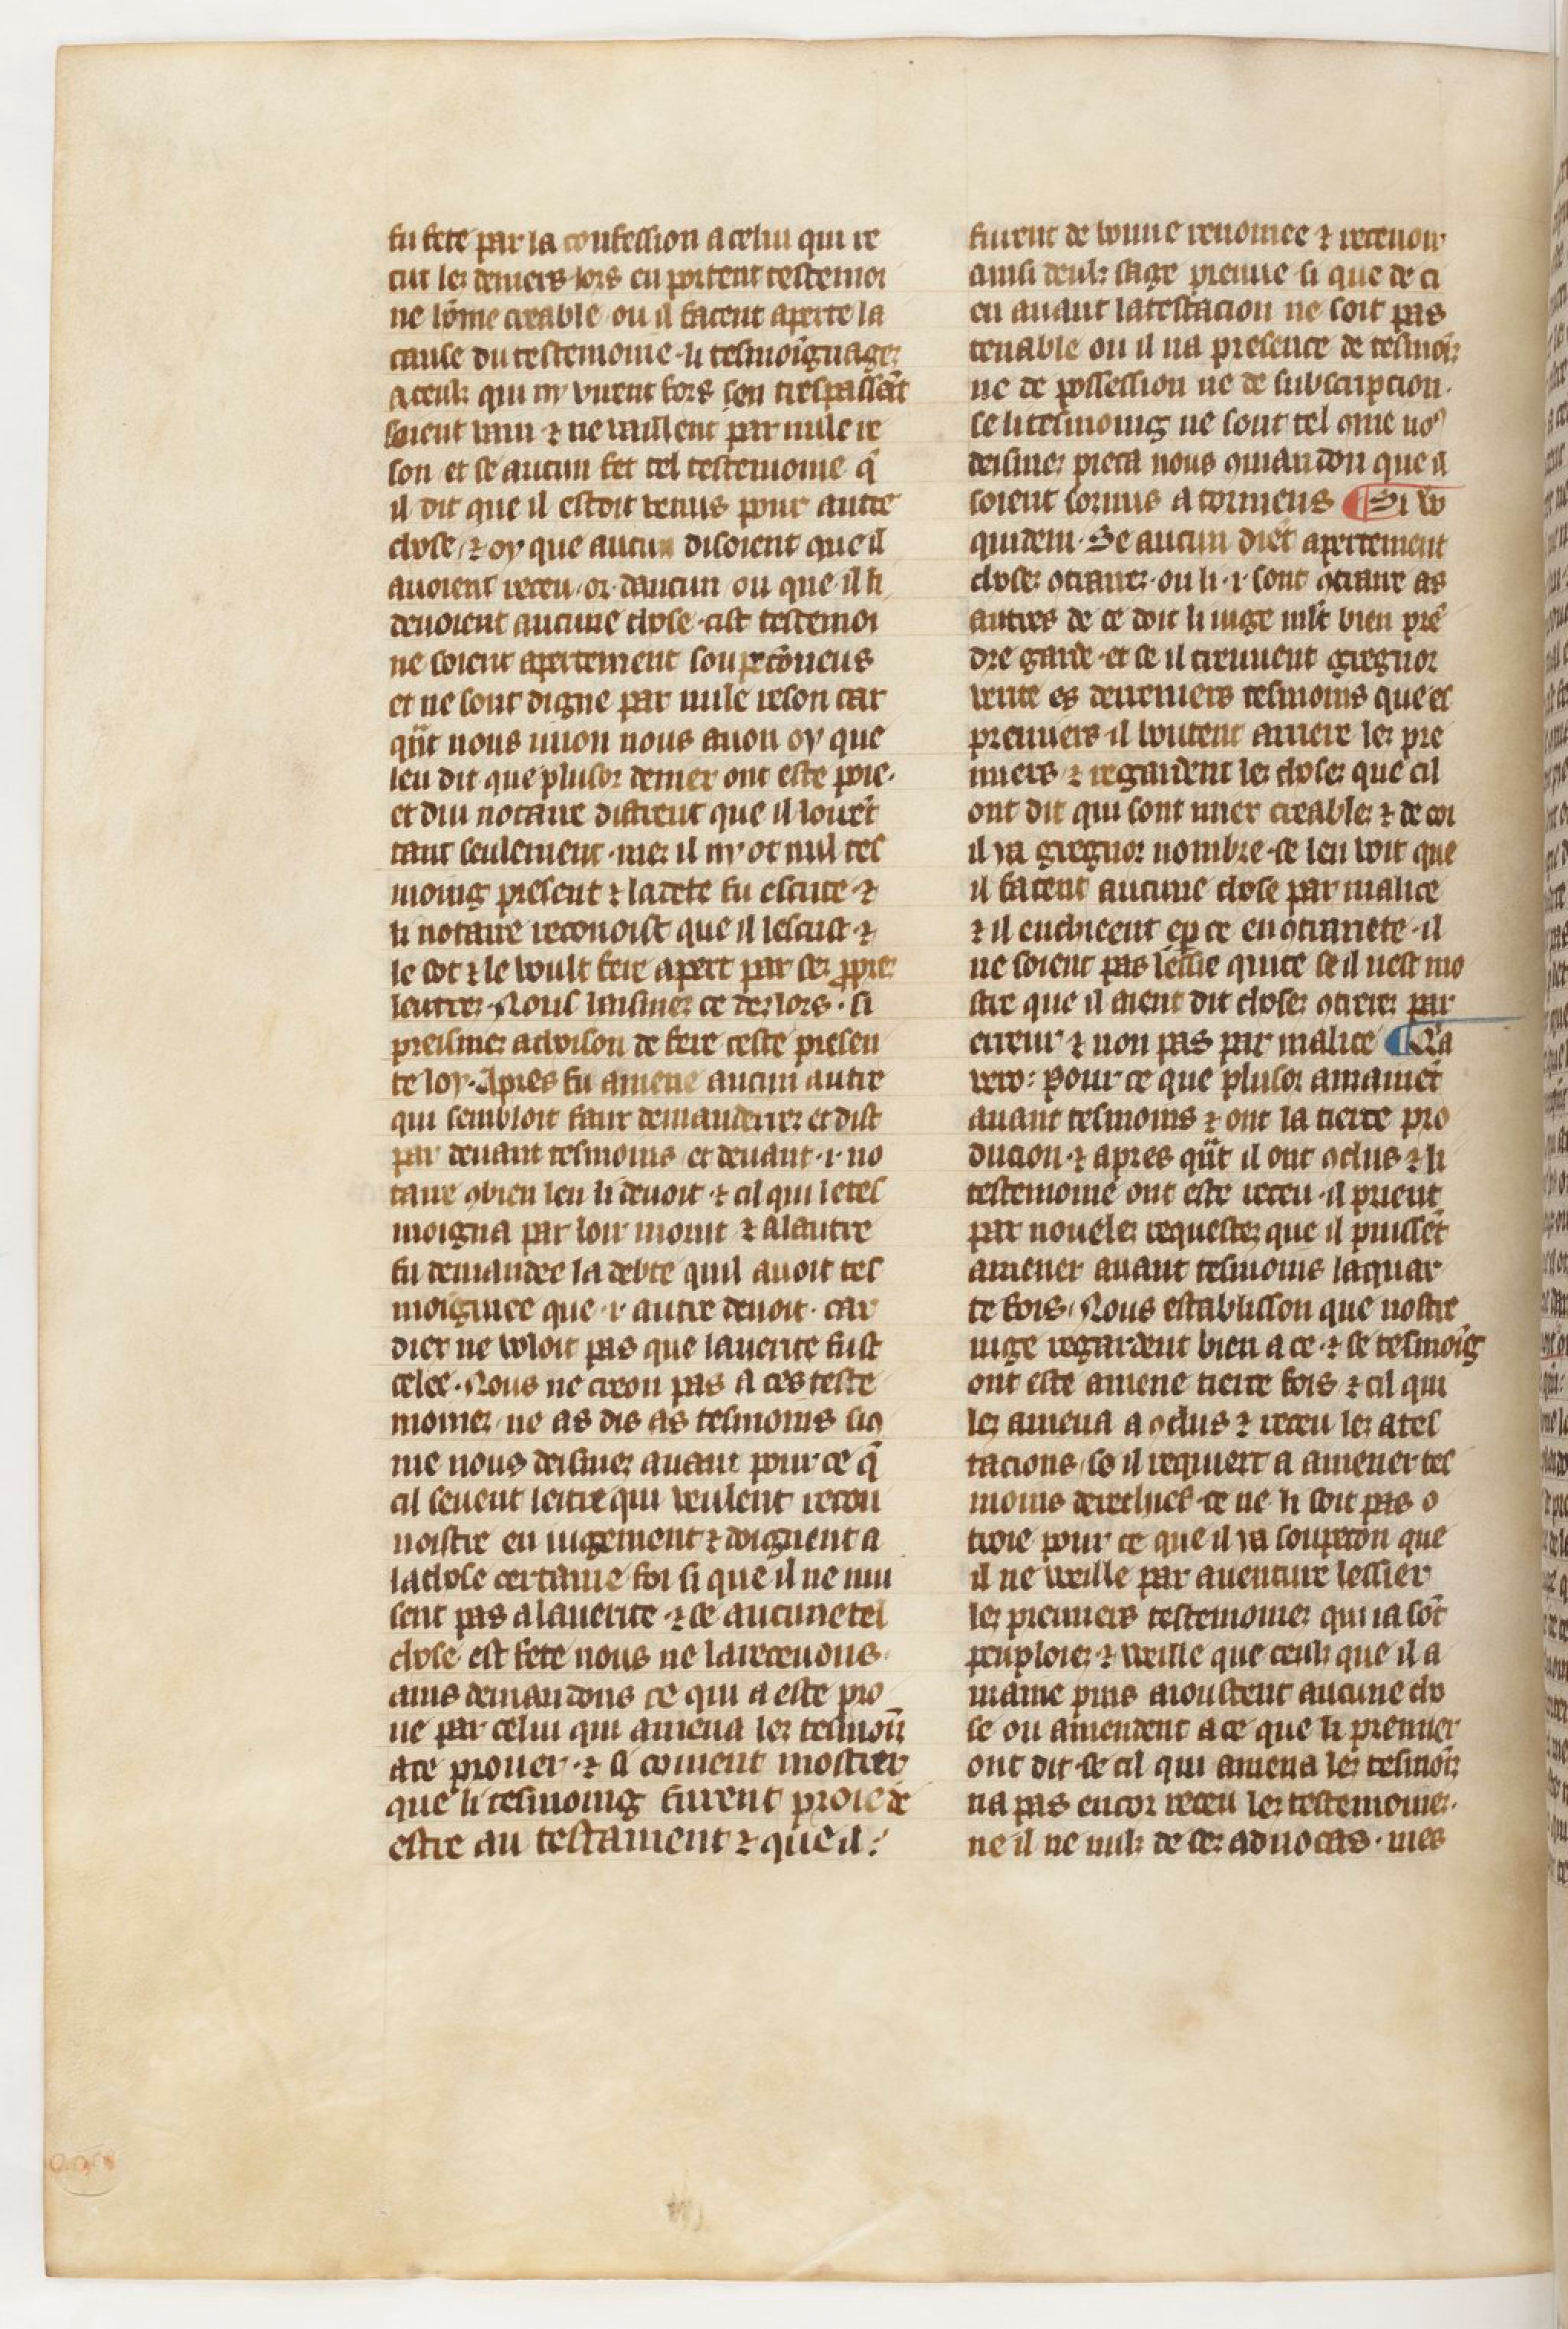 fu fete par la confession a celui qui re
cut les deniers lors en portent testemoi
ne lome creable ou il facent aperte la
cause du testemoine li tesmoignages
a ceuls qui ny vurent fors sen trespassāt
soient vain ⁊ ne vaillent par nule re
son et se aucun fet tel testemoine q̄
il dit que il estoit venus pour autre
chose ⁊ oy que aucun disoient que il
auoient receu or daucun ou que il li
deuoient aucune chose cist testemoi
ne soient apertement soupeconeus
et ne sont digne par nule reson car
q̄nt nous iuion nous auon oy que
len dit que plusor denier ont este poie·
et dui notaire distrent que il louerēt
tant seulement mes il ny ot nul tes
moing present ⁊ la dete fu escrite ⁊
li notaire reconoist que il lescrist ⁊
le sot ⁊ le voult fere apert par ses ꝓpres
lettres· Nous laisimes ce deslors· si
preismes achoison de fere ceste presen
te loy· Apres fu amene aucun autre
qui sembloit faur demanderres et dist
par deuant tesmoins et deuant ·i· no
taire ꝯbien len li deuoit ⁊ cil qui letes
moigna par loir morut ⁊ a lautre
fu demandee la debte quil auoit tes
moignee que ·i· autre deuoit· car
diex ne voloit pas que la uerite fust
celee· Nous ne creon pas a ces teste
moines ne as dis as tesmoins sico
me nous deismes auant pour ce q̄
cil seuent lettre qui veulent recon
noistre en iugement ⁊ doignent a
la chose certaine foi si que il ne nui
sent pas a la uerite ⁊ se aucune tel
chose est fete nous ne la receuons·
ains demandons ce qui a este pro
ue par celui qui amena les tesmoīs
a ce prouer ⁊ si conuent mostrer
que li tesmoing furent proie de
estre au testament ⁊ que il
furent de bonne renomee ⁊ receuoir
ainsi deuls sage preuue si que de ci
en auant latestacion ne soit pas
tenable ou il na presence de tesmoīs
ne de possession ne de subscripcion·
se li tesmoing ne sont tel ꝯme noꝰ
deismes pieca nous ꝯmandon que il
soient sormis a tormens ¶ Si vo
quidem· Se aucun diēt apertement
choses ꝯtraires ou li ·i· sont ꝯtraire as
autres de ce doit li iuge mlt̄ bien prē
dre garde et se il treuuent gregnor
verite es derreniers tesmoins que es
premiers il boutent arriere les pre
miers ⁊ regardent les choses que cil
ont dit qui sont miex creables ⁊ de coi
il ya gregnor nombre se len voit que
il facent aucune chose par malice
⁊ il encheent ep̄ ce en ꝯtrariete il
ne soient pas lessie quite se il nest mo
stre que il aient dit choses ꝯtreres par
erreur ⁊ non pas par malice ¶ Q̄a
vero: Pour ce que plusor amainēt
auant tesmoins ⁊ ont la tierce pro
ducion ⁊ apres q̄nt il ont ꝯclus ⁊ li
testemoine ont este receu il prient
par noueles requestes que il puissēt
amener auant tesmoins la quar
te fois· Nous establisson que nostre
iuge regardent bien a ce ⁊ se tesmoīg
ont este amene tierce fois ⁊ cil qui
les amena a ꝯclus ⁊ receu les ates
tacions se il requiert a amener tes
moins derechief ce ne li soit pas o
troie pour ce que il ya soupecon que
il ne veille par auenture lessier
les premiers testemoines qui ia sōt
peuploies ⁊ veille que ceuls que il a
maine puis aioustent aucune cho
se ou amendent a ce que li premier
ont dit se cil qui amena les tesmoīs
na pas encor receu les testemoines·
ne il ne nuls de ses aduocas· mes